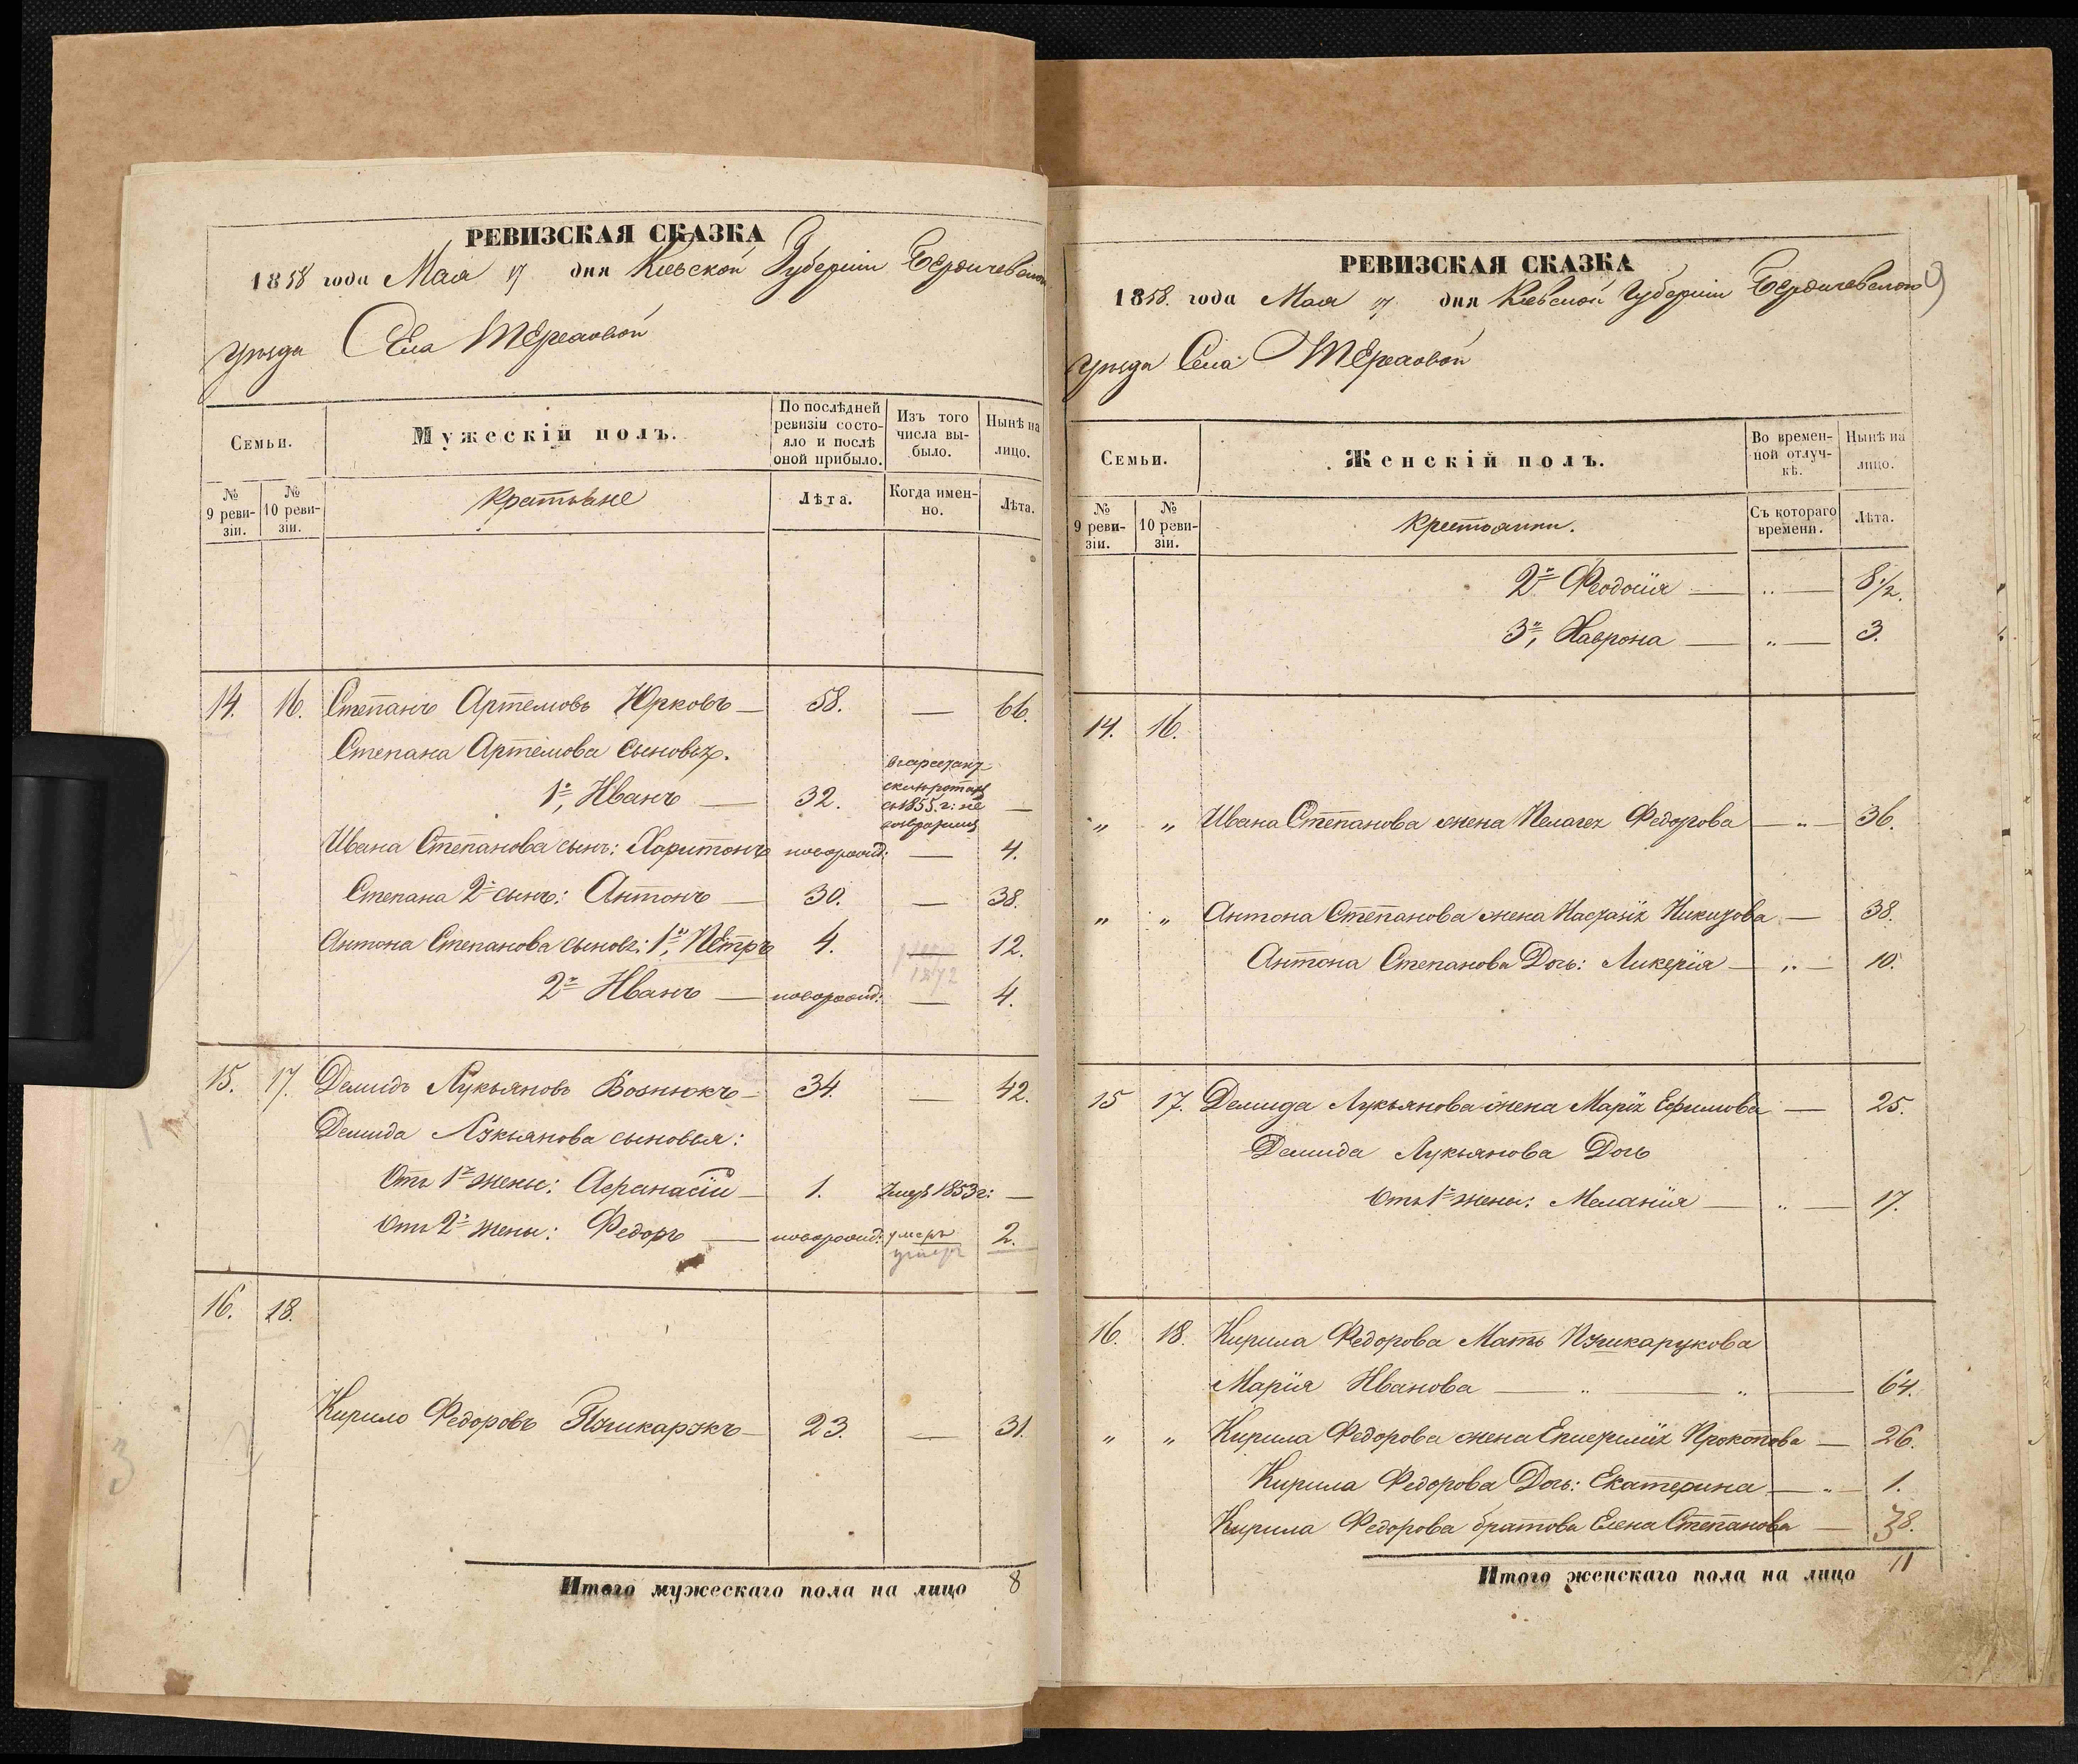 РЕВИЗСКАЯ СКАЗКА
1858 года Мая 17 дня Кіевской Губерніи Бердичевского
уѣзда Села Терховой
Семьи.
Мужескій полъ.
По послѣдней ревизіи состояло и послѣ оной прибыло.
Изъ того числа выбыло.
Нынѣ на лицо.
№ 9 ревизіи.
№ 10 ревизіи.
Крестьяне
Лѣта.
Когда именно.
Лѣта.
14. 16. Степанъ Артемовъ Юрковъ — 58. — 66.
Степана Артемова сыновья.
1й, Иванъ — 32. съ 1855. г: не —
Ивана Степанова сынъ: Харитонъ новорожд: — 4.
Степана 2й сынъ: Антонъ — 30. — 38.
Антона Степанова сыновья: 1й, Петръ 4. — 12.
1872
2й Иванъ — новорожд: — 4.
15. 17. Демидъ Лукьяновъ Вознюкъ — 34. — 42.
Демида Лукьянова сыновья:
Отъ 1й жены: Афанасій — 1. Умеръ 1853 г: —
Отъ 2й жены: Федоръ — новорожд: умеръ 2.
умеръ
16. 18.
Кирило Федоровъ Пучикарукъ — 23. — 31.
Итого мужескаго пола на лицо 8
РЕВИЗСКАЯ СКАЗКА
1858. года Мая 17 дня Кіевской Губерніи Бердичевского
уѣзда Села Терховой
Семьи.
Женскій полъ.
Во временной отлучкѣ.
Нынѣ на лицо.
№ 9 ревизіи.
№ 10 ревизіи.
Крестьянки.
Съ котораго времени.
Лѣта.
2я Феодосія — „ — 8 1/2.
3я, Хаврона — „ — 3.
14. 16.
„ „ Ивана Степанова жена Пелагея Федорова — „ — 36.
„ „ Антона Степанова жена Настасія — 38.
Антона Степанова Дочь: Ликерія — „ — 10.
15 17. Демида Лукьянова жена Марія Ефимова — 25.
Демида Лукьянова Дочь
Отъ 1й жены: Меланія — „ — 17.
16. 18. Кирила Федорова Мать Пучикарукова
Марія Иванова — „ — „ — 64.
„ „ Кирила Федорова жена Прокопова — 26.
Кирила Федорова Дочь: Екатерина — „ — 1.
Кирила Федорова братова Елена Степанова — 38.
Итого женскаго пола на лицо 11